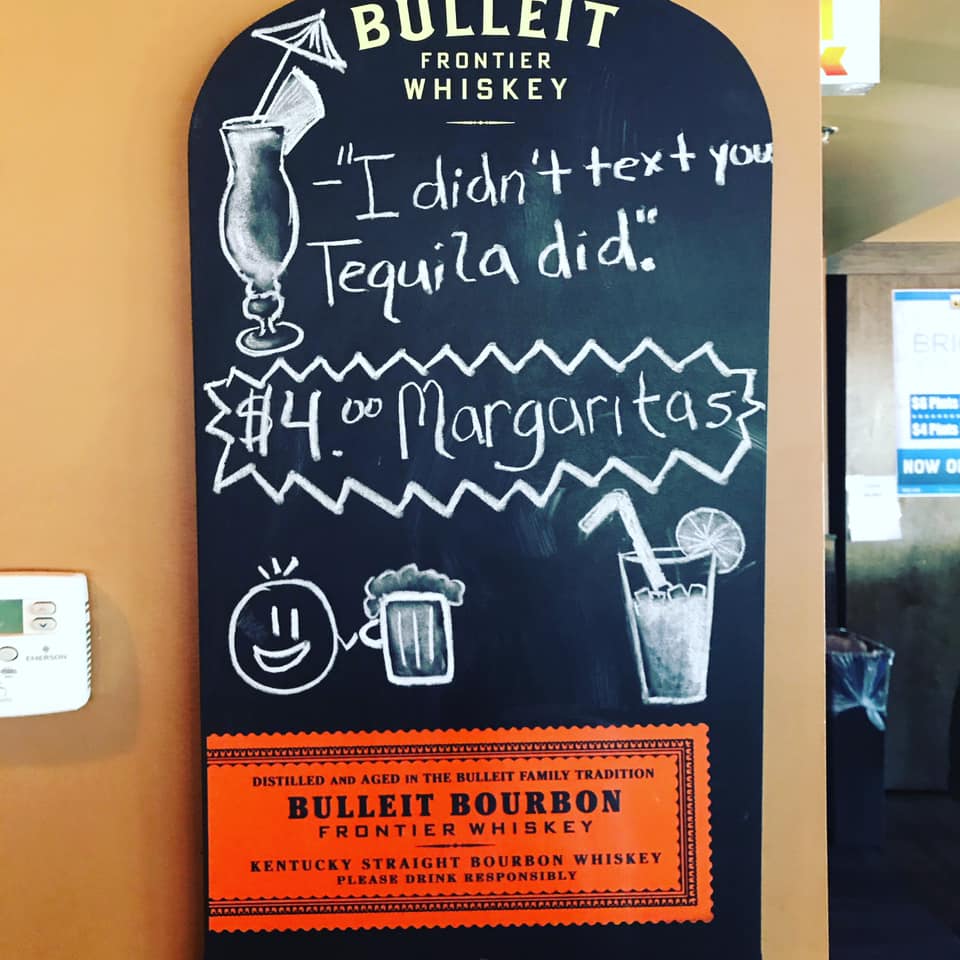 BULLEIT
FRONTIER
WHISKEY
-"I didn't text you
Tequila did."
$4.00 Margaritas
DISTILLED AND AGED IN THE BULLEIT FAMILY TRADITION
BULLEIT BOURBON
FRONTIER WHISKEY
KENTUCKY STRAIGHT BOURBON WHISKEY
PLEASE DRINK RESPONSIBLY
EMERSON
$6 Pints
$4 Pints
NOW